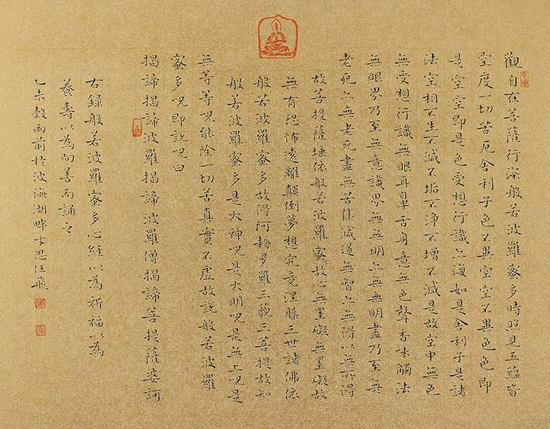 觀自在菩薩行深般若波羅蜜多時照見五蘊皆
空度一切苦厄舍利子色不異空空不異色色即
是空空即是色受想行識亦復如是舍利子是諸
法空相不生不滅不垢不淨不增不減是故空中無色
無受想行識無眼耳鼻舌身意無色聲香味觸法
無眼界乃至無意識界無無明亦無無明盡乃至無
老死亦無老死盡無苦集滅道無智亦無得以無所得
故菩提薩埵依般若波羅蜜多故心無罣礙無罣礙故
無有恐怖遠離顛倒夢想究竟涅槃三世諸佛依
般若波羅蜜多故得阿耨多羅三藐三菩提故知
般若波羅蜜多是大神呪是大明呪是無上呪是
無等等呪能除一切苦真實不虛故說般若波羅
蜜多呪即說呪曰
揭諦揭諦波羅揭諦波羅僧揭諦菩提薩婆訶
右錄般若波羅蜜多心經以為祈福以為
養壽以為向善而誦之
乙未穀雨前於波海湖畔